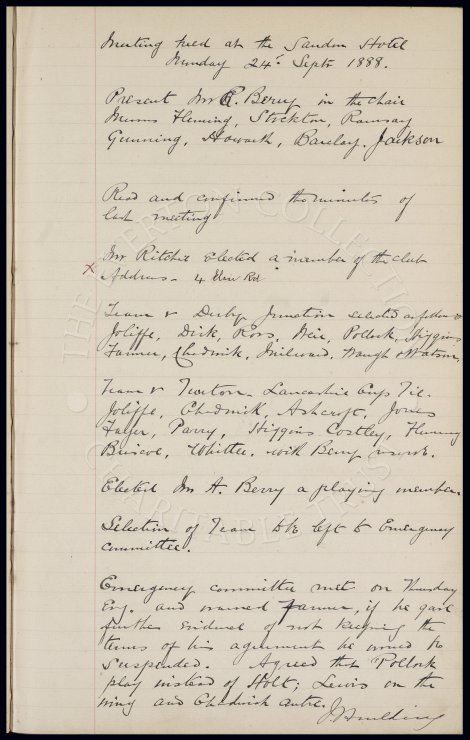 Meeting held at the Sandon Hotel
Monday 24th Sept 1888.
Present Mr R. Berry in the chair
Messrs Fleming, Stockton, Ramsay
Gunning, Howarth, Barclay. Jackson
Read and confirmed the minutes of
last meeting
X Mr Ritchie elected a member of the club
Address - 4 Rd
Team v Derby Junction selected as follows
Joliffe, Dick, Ross, Weir, Pollock, Higgins
Farmer, Chadwick, Milward. Waugh & Watson.
Team v Newton. Lancashire Cup Tie.
Joliffe, Chadwick, Ashcroft, Jones
Parry, Higgins Costley, Fleming
Briscoe, Whittle. with Berry reserve.
Elected Mr A. Berry a playing member
Selection of Team to be left to Emergency
committee.
Emergency committee met on Thursday
Evg. and warned Farmer, if he gave
further evidence of not keeping the
terms of his agreement he would be
suspended. Agreed that Pollock
play instead of Holt; Lewis on the
wing and Chadwick centre.
THE EVERTON COLLECTION
CHARITABLE TRUST